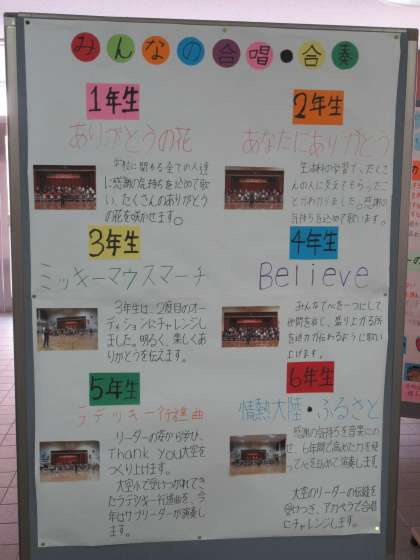 みんなの合唱・合奏
1年生
ありがとうの花
に関わる全ての人達
に感謝の気持ちを込めて歌
い、たくさんのありがとう
の花を咲かせます。
2年生
あなたにありがとう
生活科の学習で、たくさ
んの人に支えてもらったこ
とがわかりました。感謝の
気持ちを込めて歌います。
3年生
ミッキーマウスマーチ
3年生は、2度目のオー
ディションにチャレンジし
ました。明るく、楽しく
ありがとうを伝えます。
4年生
Believe
みんなで心を一つにして
仲間を信じ、盛り上がる所
を迫力が伝わるように歌い
上げます。
5年生
ラデツキー行進曲
リーダーの姿から学び、
Thank you大空を
つくり上げます。
大空小で受けつがれてき
たラデツキー行進曲を、今
年はサブリーダーが演奏し
ます。
6年生
情熱大陸・ふるさと
感謝の気持ちを音楽にの
せ、6年間で高めた力を使
って心を込めて演奏します。
大空のリーダーの伝統を
受けつぎ、アカペラで合唱
にチャレンジします。